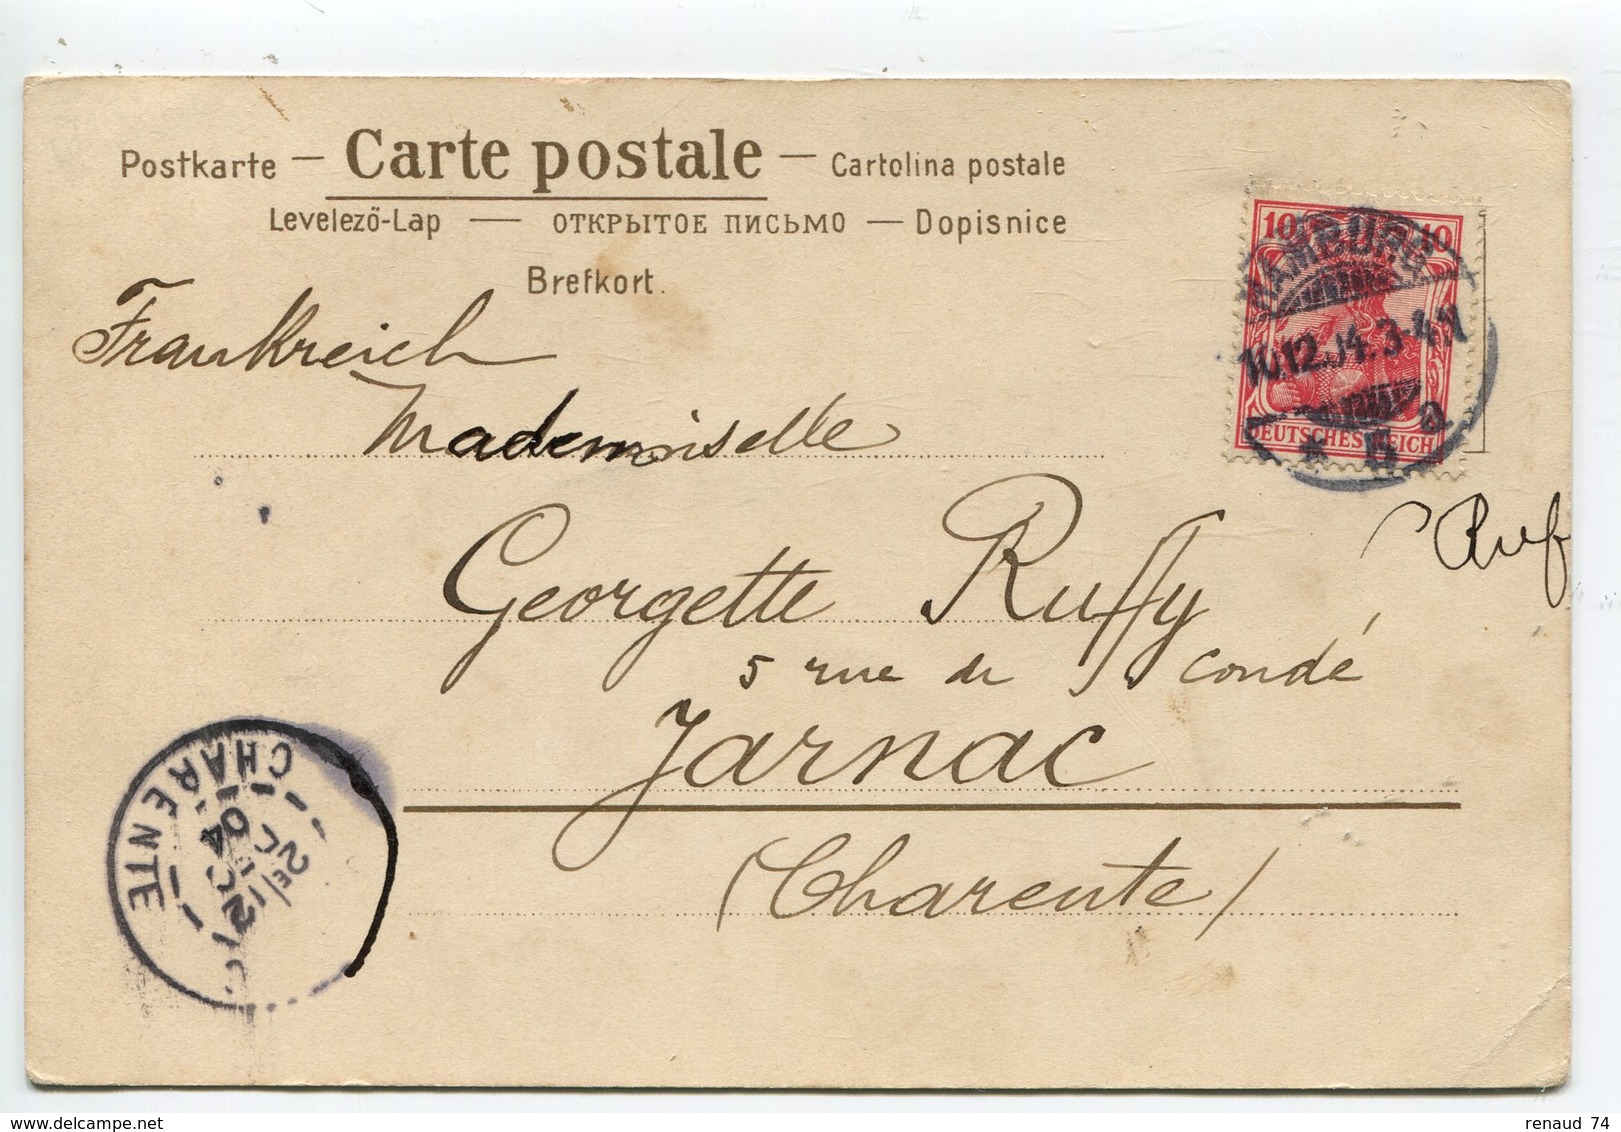 Postkarte — Carte postale — Cartolina postale
Levelező-Lap — ОТКРЫТОЕ ПИСЬМО — Dopisnice
Brefkort.
10 10
HAMBURG
12.04.3-4N
* a
DEUTSCHES REICH
Frankreich
Mademoiselle
Georgette Ruffy
Ruf
5 rue de Condé
Jarnac
(Charente)
CHARENTE
2E/
12
04
renaud 74